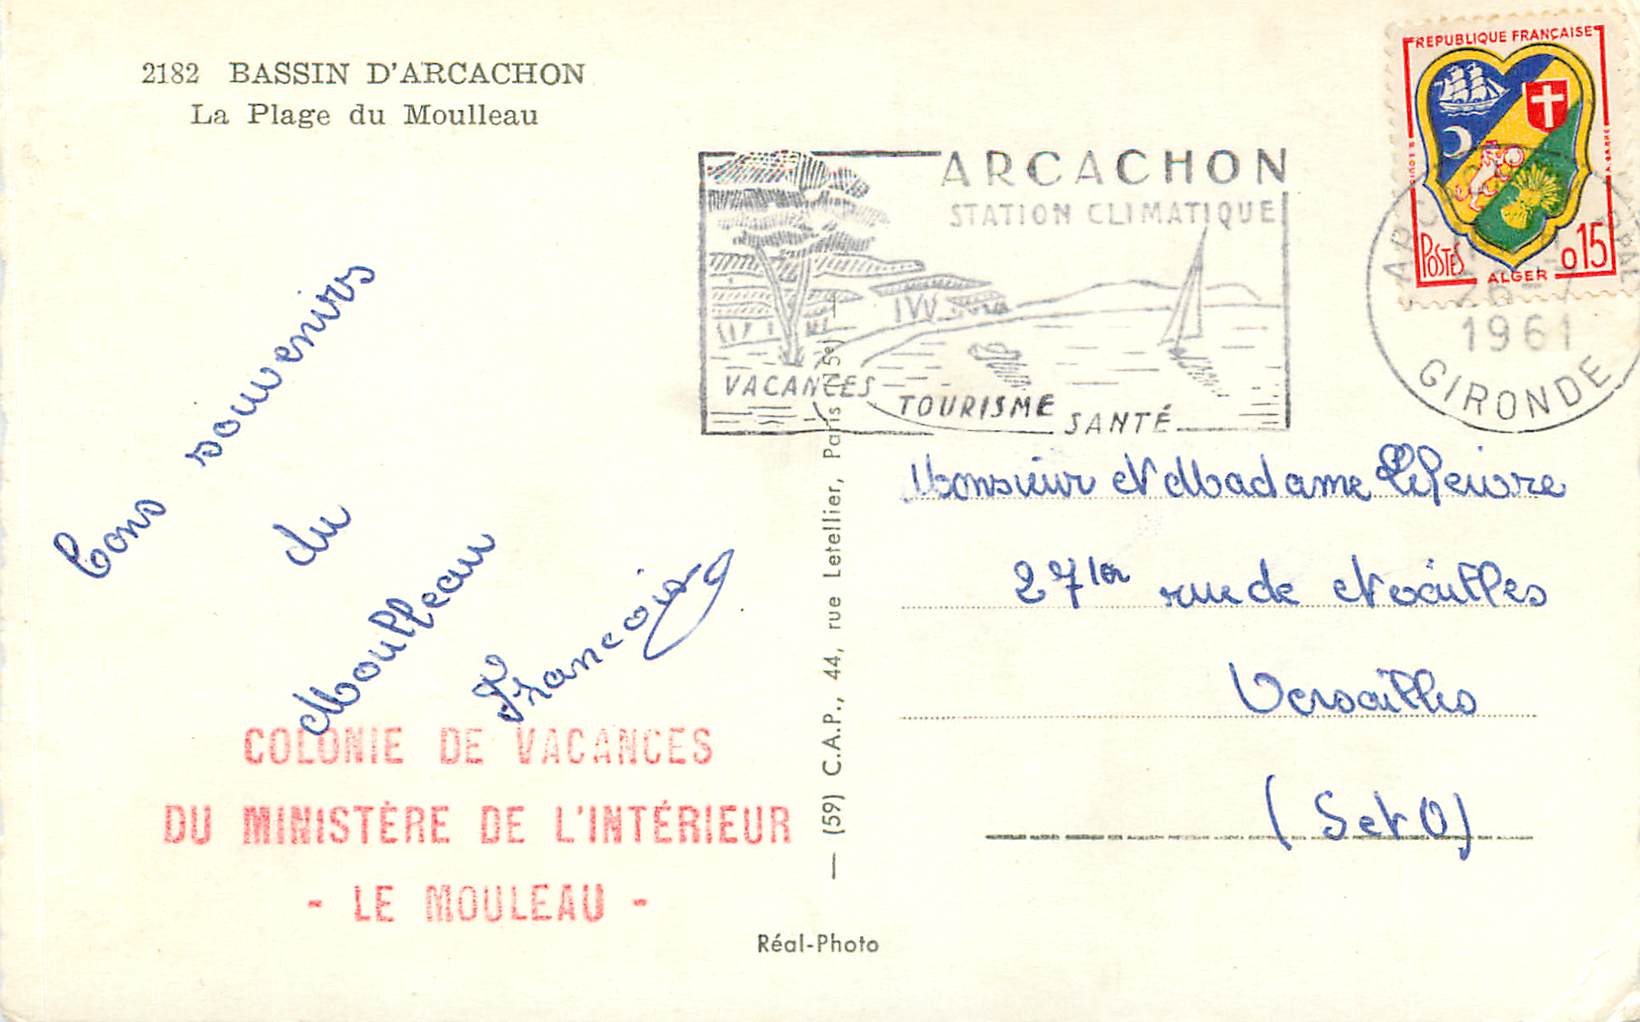 2182 BASSIN D'ARCACHON
La Plage du Moulleau
ARCACHON
STATION CLIMATIQUE
VACANCES
TOURISME
SANTÉ
REPUBLIQUE FRANÇAISE
POSTES
ALGER
0,15
1961
GIRONDE
Bons souvenirs
du
Moulleau
François
COLONIE DE VACANCES
DU MINISTÈRE DE L'INTÉRIEUR
- LE MOULEAU -
— (59) C.A.P., 44, rue Letellier, Paris (15e) —
Réal-Photo
Monsieur et Madame Lefeivre
27ter rue de Noailles
Versailles
(S et O)